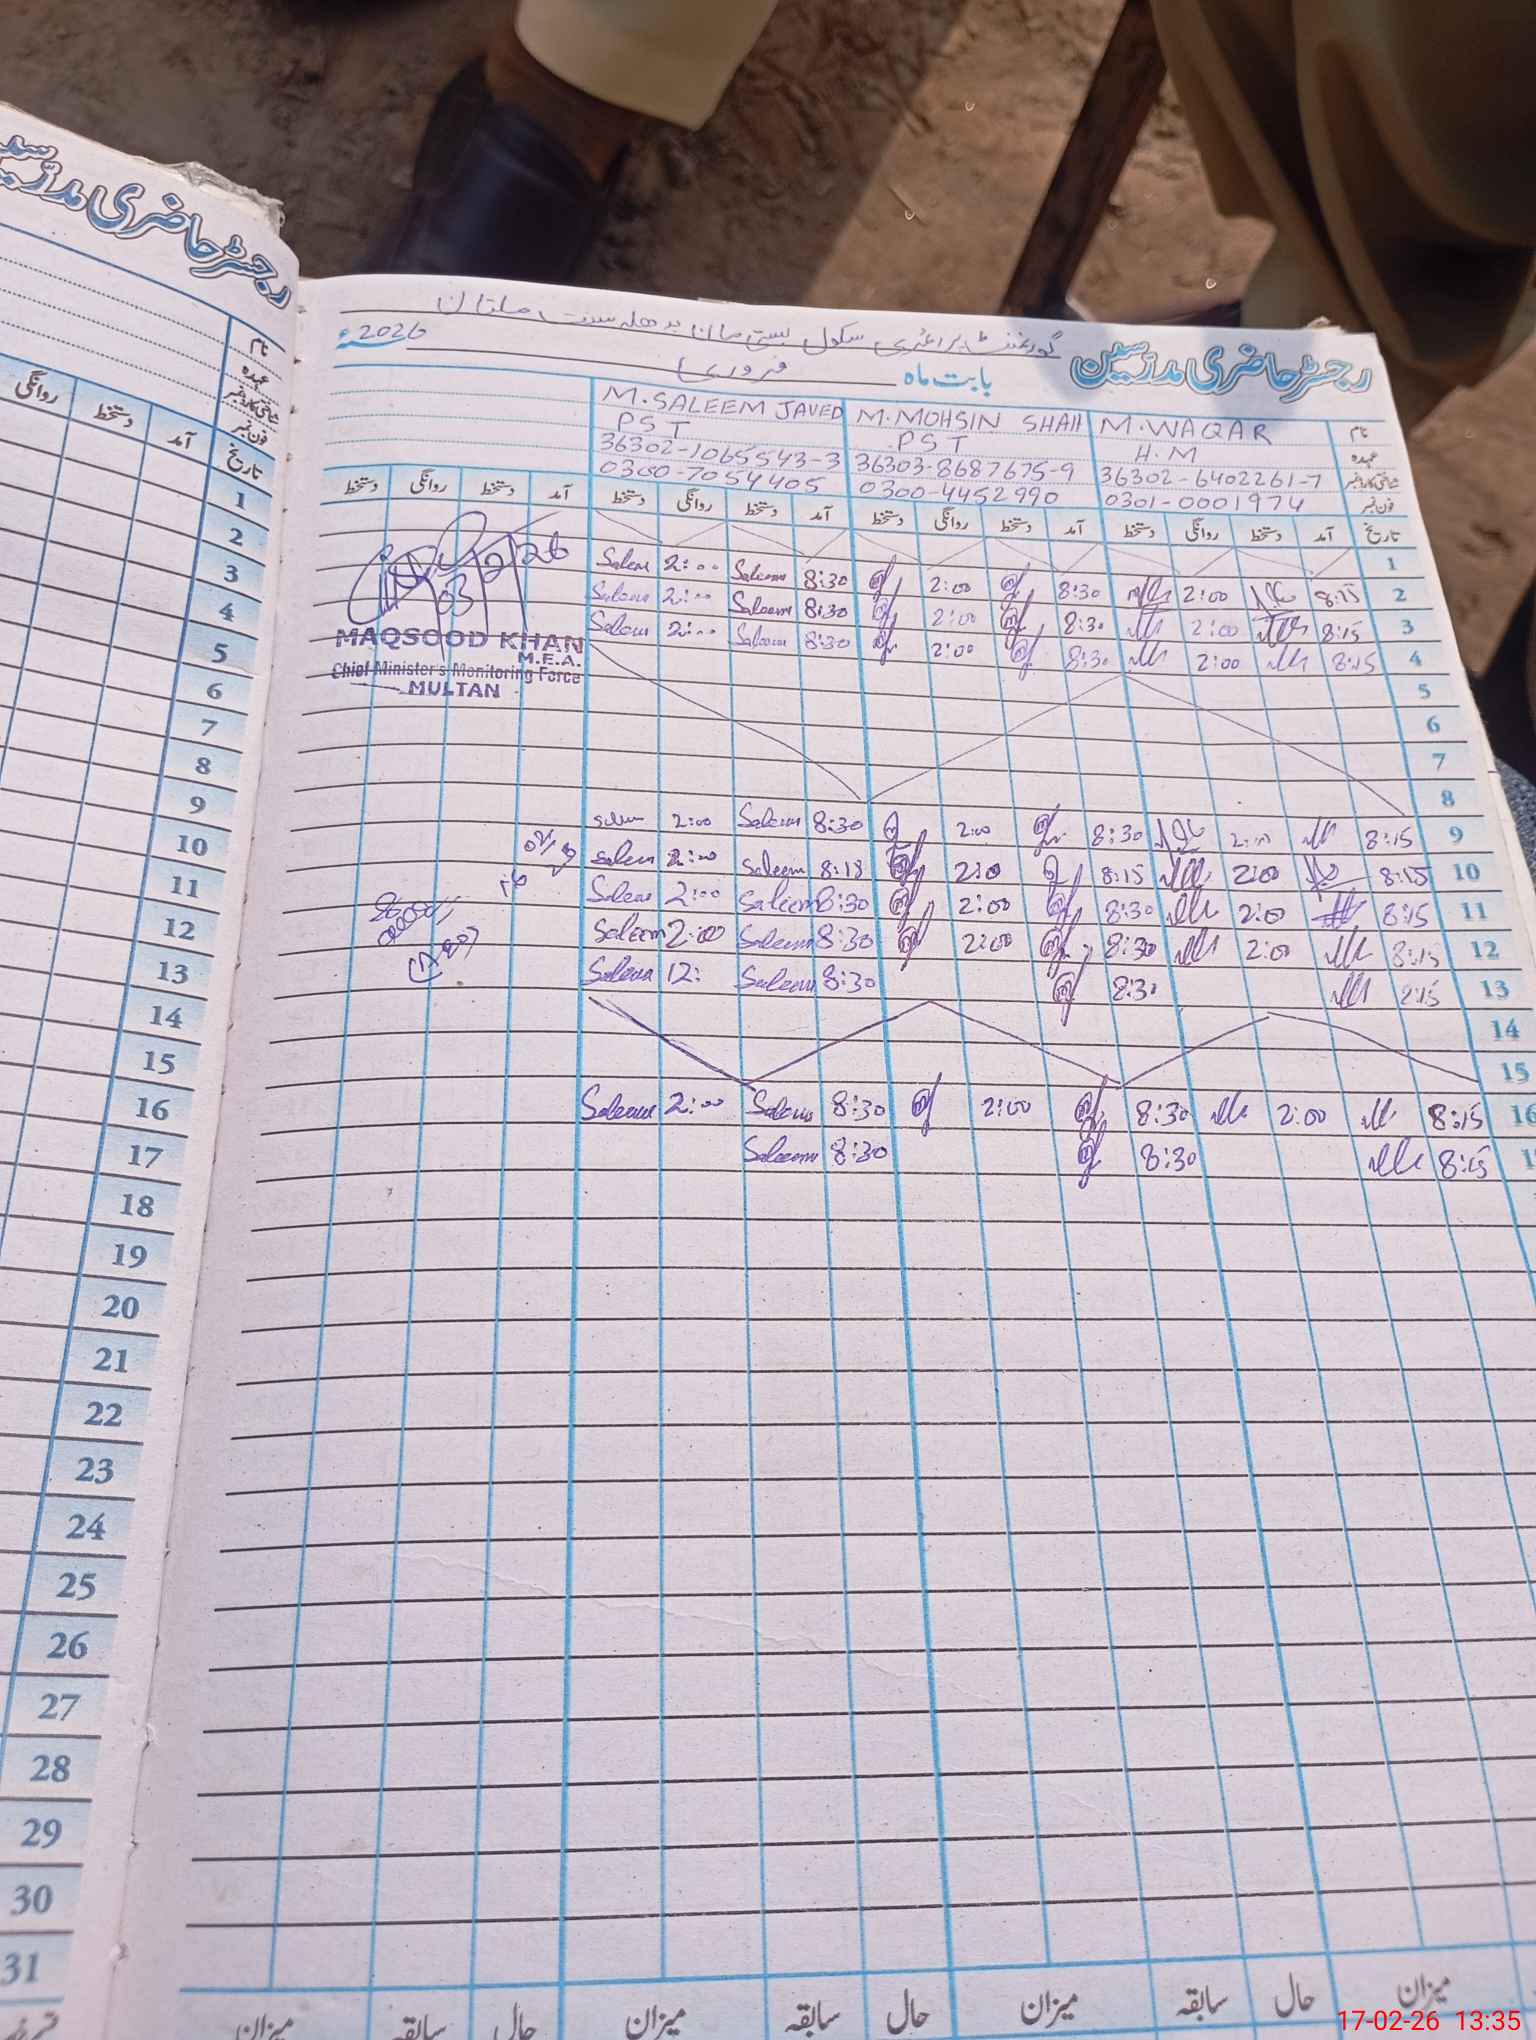 رجسٹر حاضری مدرسین
نام
عہدہ
شناختی کارڈ نمبر
فون نمبر
تاریخ آمد دستخط روانگی
1
2
3
4
5
6
7
8
9
10
11
12
13
14
15
16
17
18
19
20
21
22
23
24
25
26
27
28
29
30
31
گورنمنٹ پرائمری سکول بستی ملتان
رجسٹر حاضری مدرسین بابت ماہ فروری 2026ء
نام M.WAQAR M.MOHSIN SHAH M.SALEEM JAVED
عہدہ H.M PST PST
شناختی کارڈ نمبر 36302-6402261-7 36303-8687675-9 36302-1065543-3
فون نمبر 0301-0001974 0300-4452990 0300-7054405
تاریخ آمد دستخط روانگی دستخط آمد دستخط روانگی دستخط آمد دستخط روانگی دستخط آمد دستخط روانگی دستخط
1
2 8:15 2:00 8:30 2:00 8:30 Saleem 2:00 Saleem
3 8:15 2:00 8:30 2:00 8:30 Saleem 2:00 Saleem
4 8:15 2:00 8:30 2:00 8:30 Saleem 2:00 Saleem
03/2/26
MAQSOOD KHAN
M.E.A.
Chief Minister's Monitoring Force
MULTAN
5
6
7
8
9 8:15 2:00 8:30 2:00 8:30 Saleem 2:00 Saleem
10 8:15 2:00 8:15 2:00 8:18 Saleem 2:00 Saleem
11 8:15 2:00 8:30 2:00 8:30 Saleem 2:00 Saleem
12 8:15 2:00 8:30 2:00 8:30 Saleem 2:00 Saleem
13 8:15 8:30 8:30 Saleem 12: Saleem
14
15
16 8:15 2:00 8:30 2:00 8:30 Saleem 2:00 Saleem
8:15 8:30 8:30 Saleem
میزان حال سابقہ میزان حال سابقہ میزان حال سابقہ میزان
17-02-26 13:35